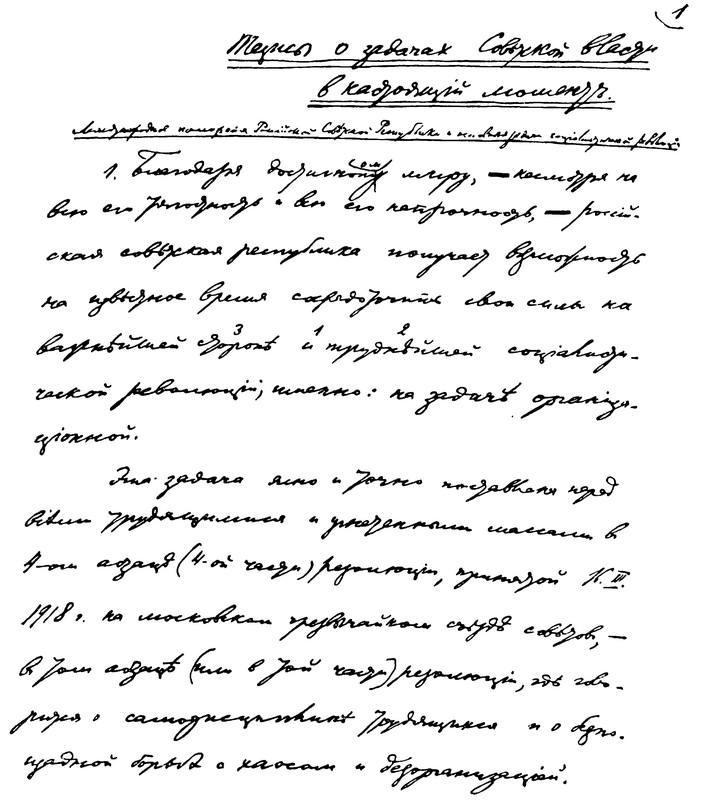 1
Тезисы о задачах Совѣтской власти
в настоящій моментъ.
Международное положеніе Россійской Совѣтской Республики и основныя задачи соціалистической революціи
1. Благодаря достигнутому миру, — несмотря на
всю его тягостность и всю его непрочность, — россій-
ская совѣтская республика получает возможность
на извѣстное время сосредоточить свои силы на
важнѣйшей 3 сторонѣ 1 и 2 труднѣйшей соціалисти-
ческой революціи, именно: на задачѣ организа-
ціонной.
Эта задача ясно и точно поставлена перед
всѣми трудящимися и угнетенными массами в
4-ом абзацѣ (4-ой части) резолюціи, принятой 16. III.
1918 г. на московском чрезвычайном съѣздѣ совѣтов, —
в том абзацѣ (или в той части) резолюціи, гдѣ гово-
рится о самодисциплинѣ трудящихся и о безпо-
щадной борьбѣ с хаосом и дезорганизаціей.